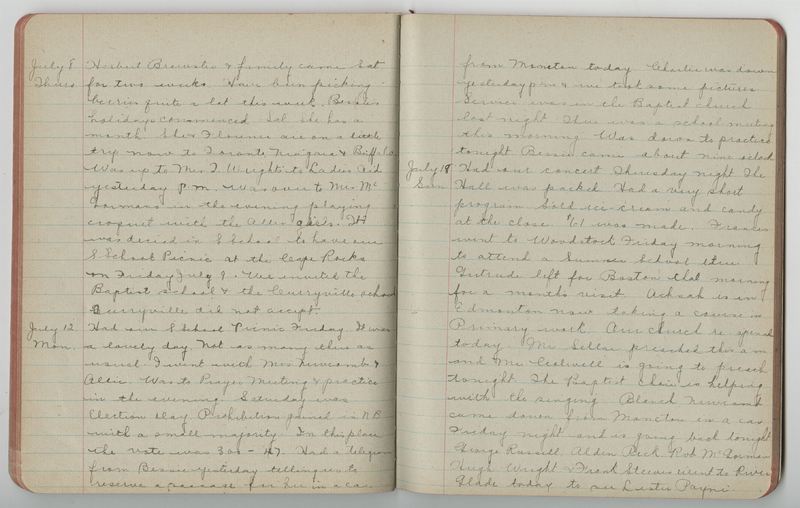 July 8 Herbert Brewster & family came Sat
Thurs for two weeks Have been picking
berries quite a lot this week. Bessie's
holidays commenced Sat she has a
month. She & Florence are on a little
trip now to Toronto Niagara & Buffalo.
Was up to Mrs J. Wright's to Ladies Aid
yesterday p.m. was over to Mrs. Mc
Gormans in the evening playing
croquet with the girls. It
was decided in S School to have our
S School Picnic at the Cape Rocks
on Friday July 9. We invited the
Baptist school & the Curryville school
Curryville did not accept.
July 12 Had our S School Picnic Friday. It was
Mon. a lovely day. Not as many there as
usual I went with Mrs Newcomb &
Allie. Was to Prayer Meeting & practice
in the evening Saturday was
Election day Prohibition gained in N B
with a small majority In this place
the vote was 300 - 47. Had a telegram
from Bessie yesterday telling us to
reserve a passage for her in a car
from Moncton today Charlie was down
yesterday p m & we took some pictures
Service was in the Baptist church
last night There was a school meeting
this morning Was down to practice
tonight Bessie came about nine oclock
July 18 Had our concert Thursday night The
Sun Hall was packed Had a very short
program Sold ice-cream and candy
at the close. $61 was made. Frances
went to Woodstock Friday morning
to attend a Summer School there
Gertrude left for Boston that morning
for a months visit. Achsah is in
Edmonton now taking a course in
Primary work. Our church re-opened
today Mr. preached this a m
and Mr. is going to preach
tonight The Baptist Choir is helping
with the singing Blanch Newcomb
came down from Moncton in a car
Friday night and is going back tonight
George Russell, Alden Peck, Rob McGorman
Hugh Wright & Frank Steeves went to River
Glade today to see Lester Payne